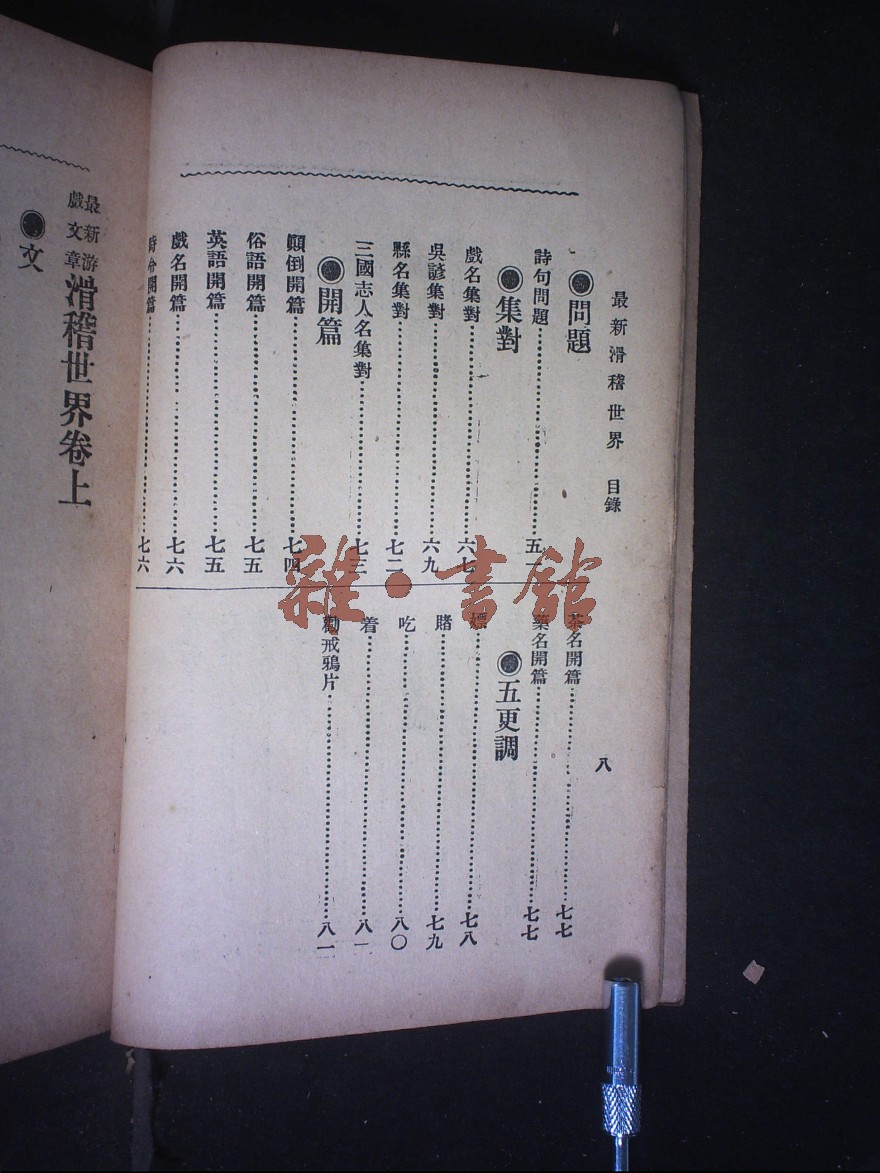 最新滑稽世界 目錄 八
◉問題
詩句問題…………五一
◉集對
戲名集對…………六七
吳諺集對…………六九
縣名集對…………七二
三國志人名集對…………七三
◉開篇
顛倒開篇…………七四
俗語開篇…………七五
英語開篇…………七五
戲名開篇…………七六
開篇…………七六
茶名開篇…………七七
藥名開篇…………七七
◉五更調
嫖…………七八
賭…………七九
吃…………八〇
着…………八一
勸戒鴉片…………八一
最新游戲文章滑稽世界卷上
◉文
雜·書館